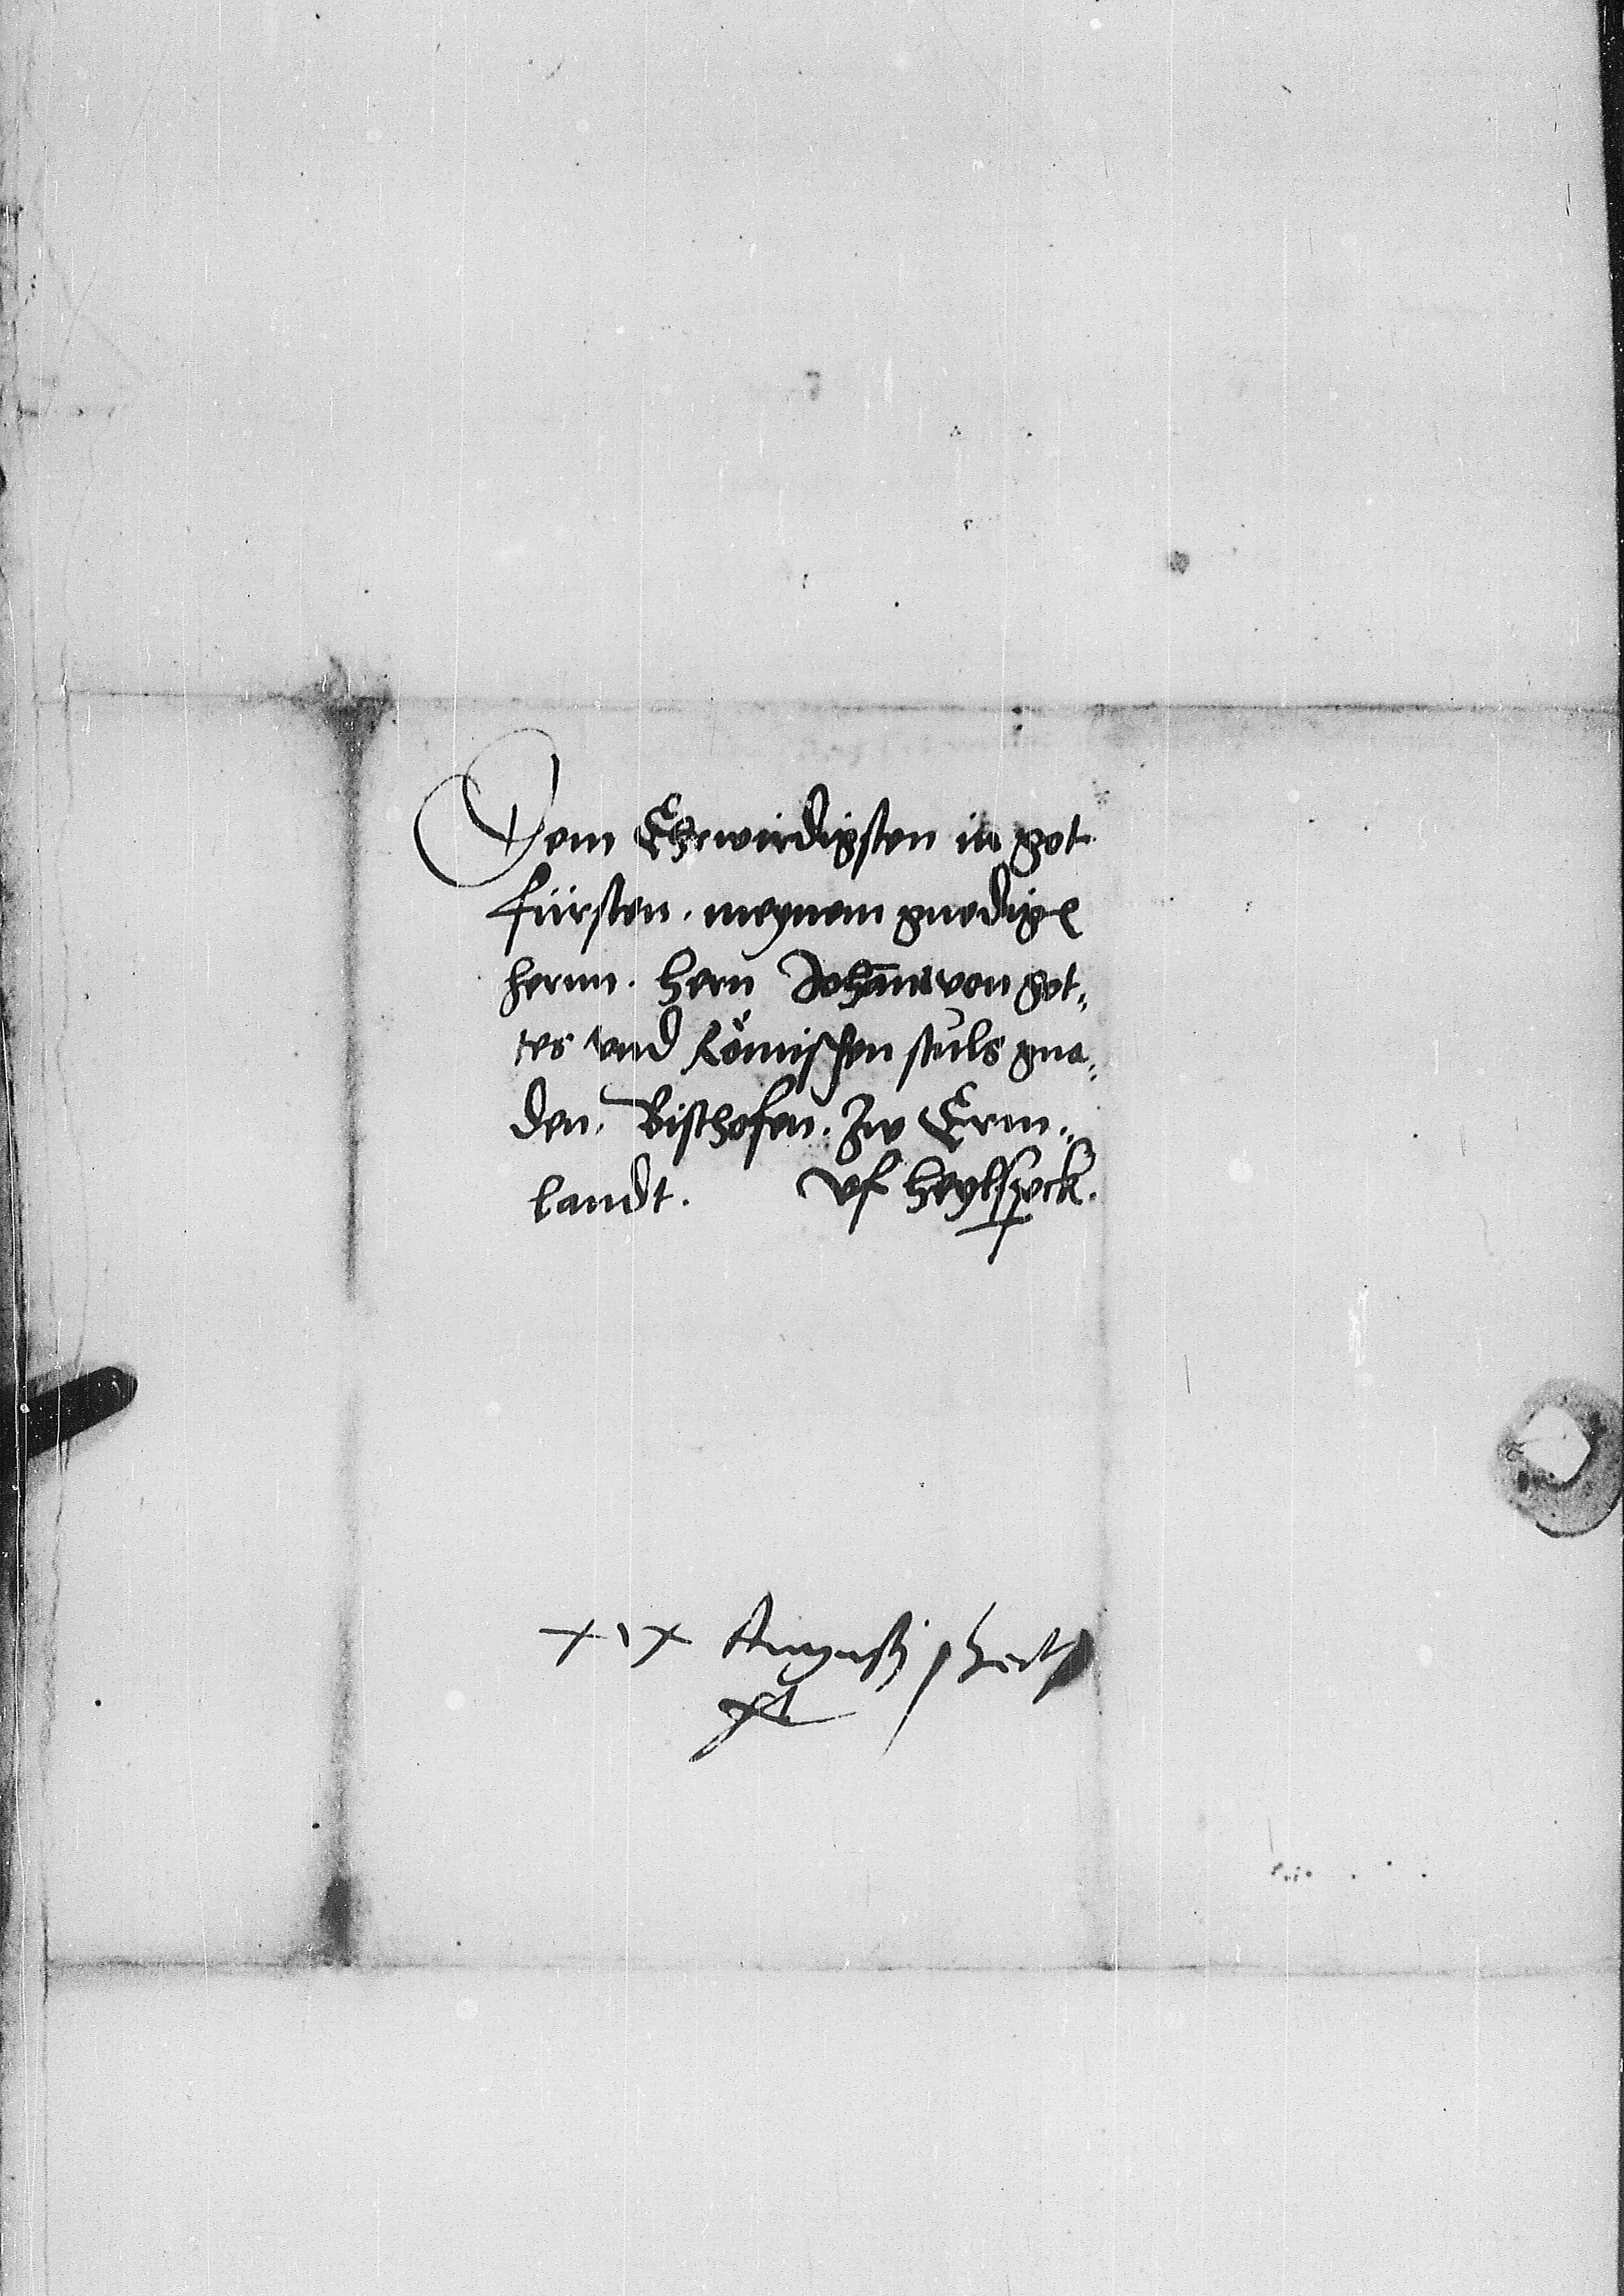 Dem Ehrwirdigsten in got
fürsten. meynem gnedigen
hernn. hern Johann von got„
tes und Römischen stuls gna„
den. Bischofen. Zw Erm„
landt. Uf heylsperck.
XIX Augusti